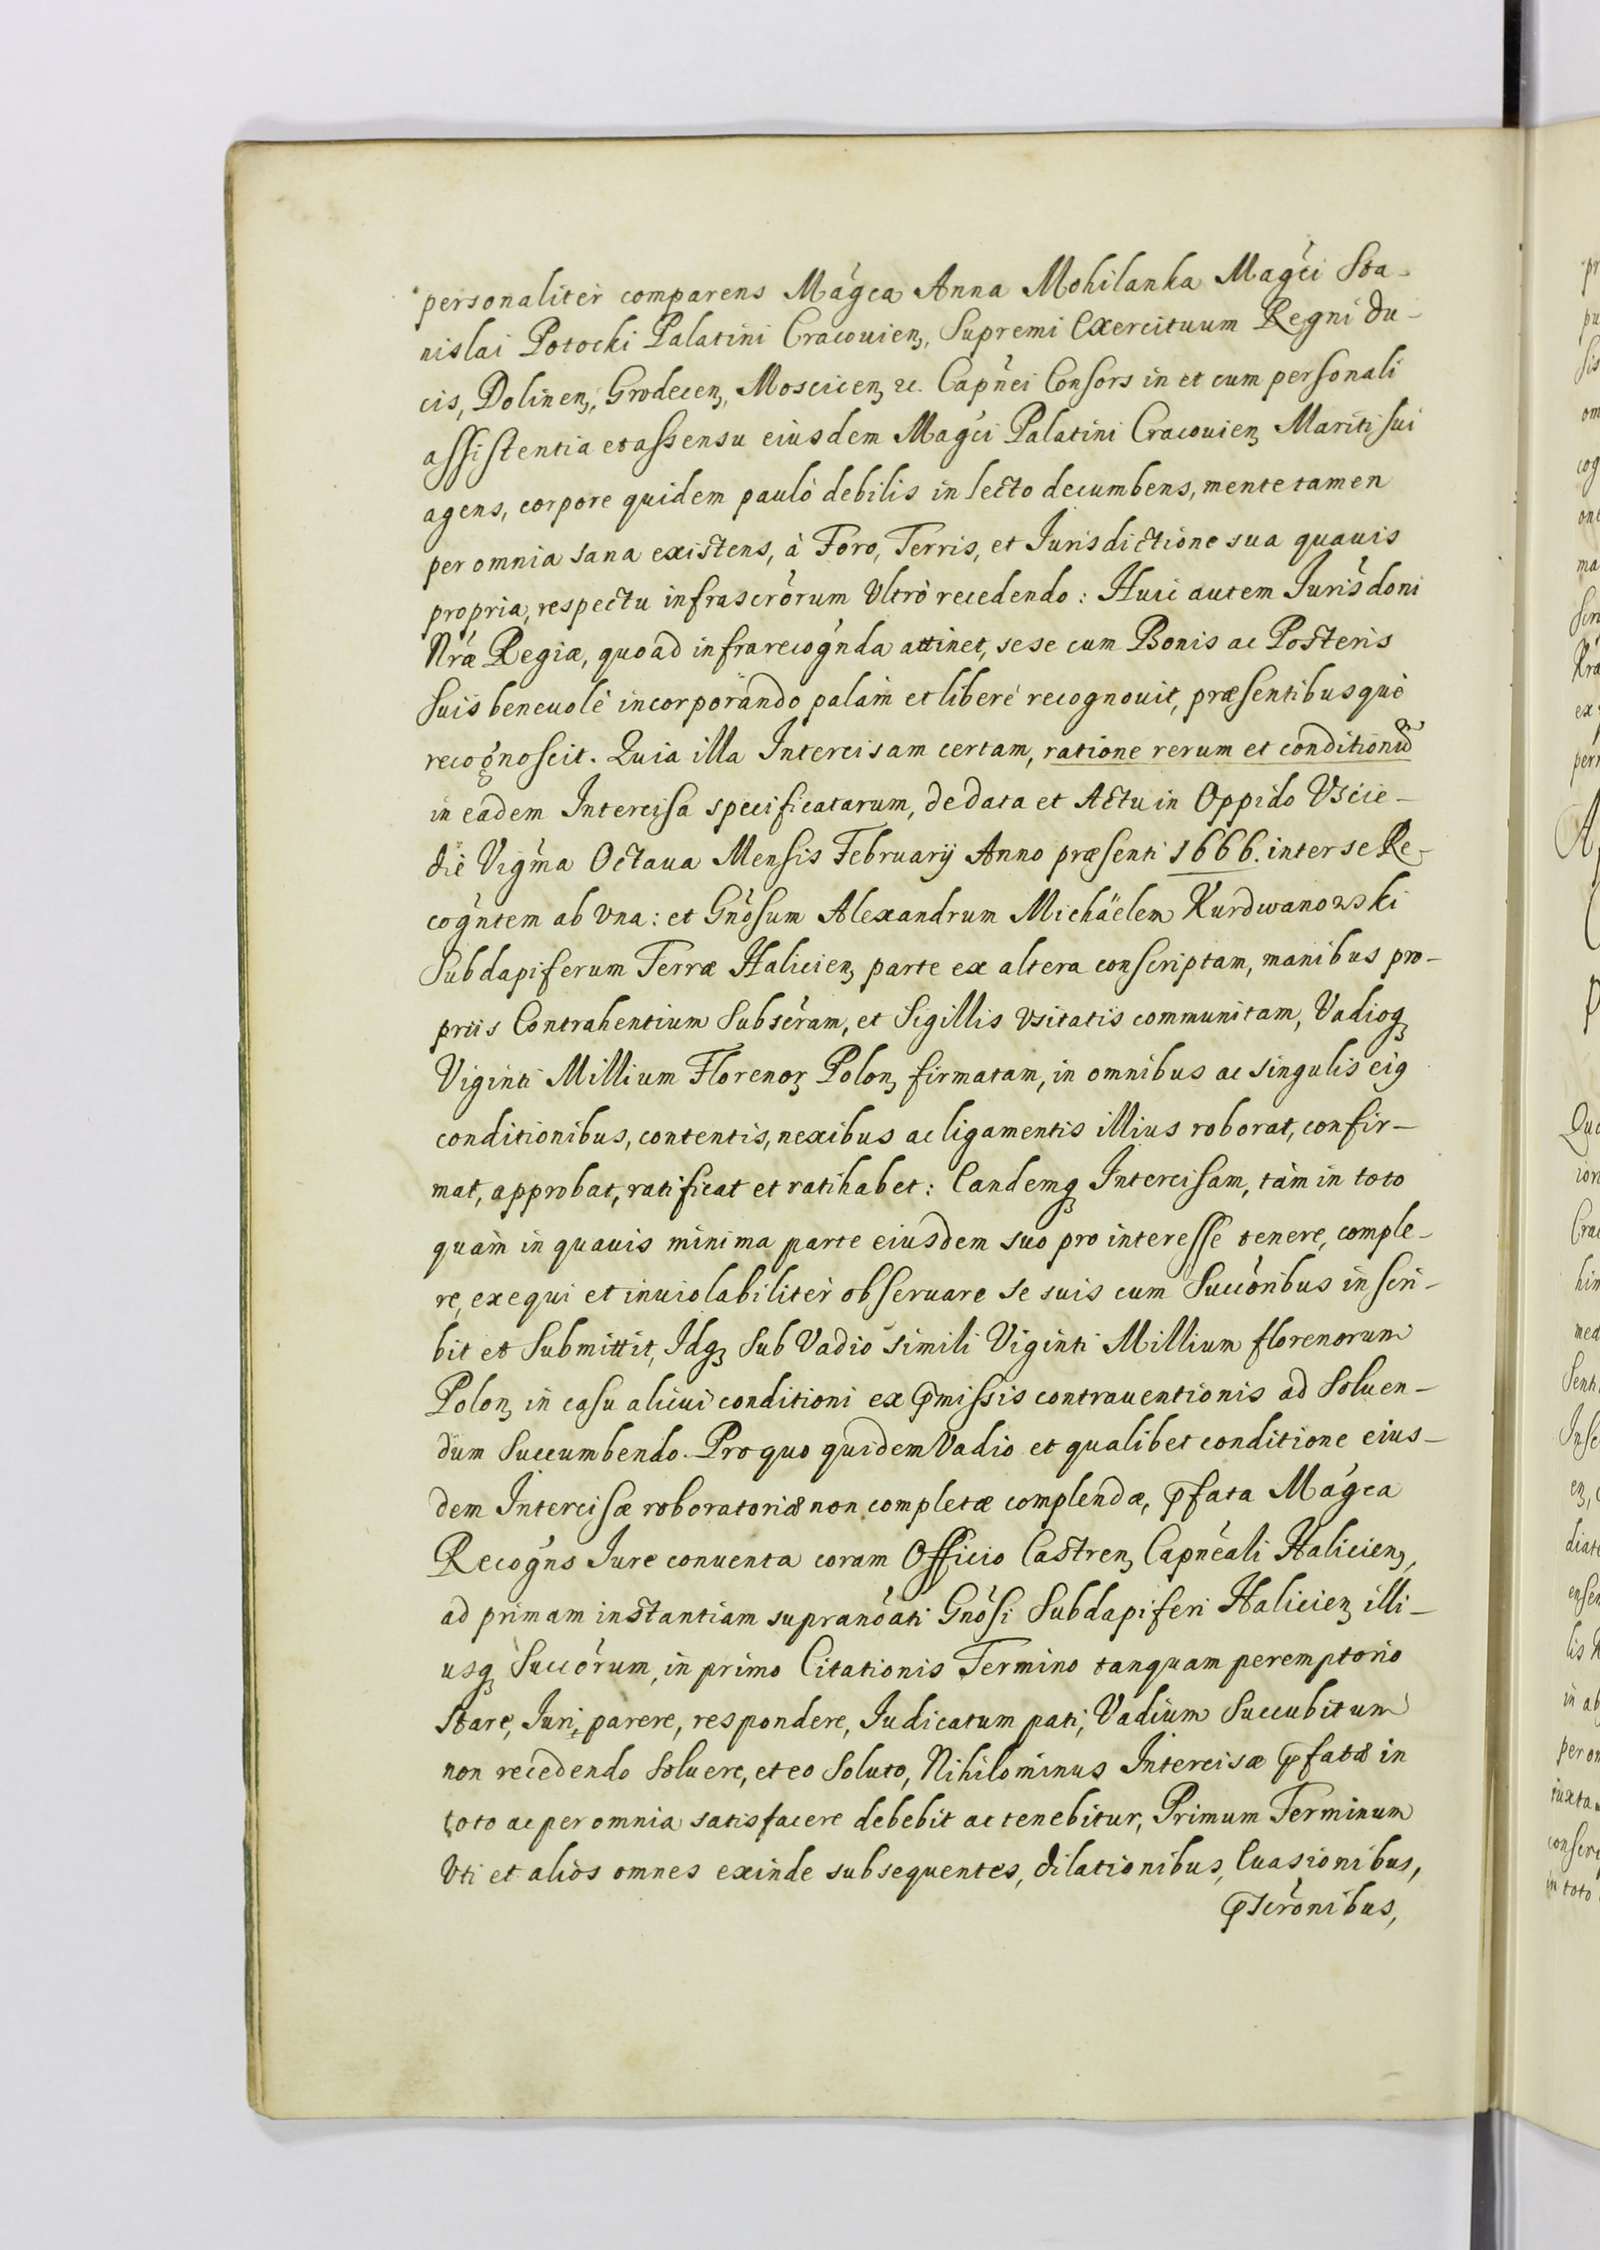 personalitèr comparens Mágca Anna Mohilanka Magći Sta-
nislai Potocki Palatini Cracouien, Supremi Exercituum Regni Du-
cis, Dolinen, Grodecen, Moscicen, &c. Capńei Consors in et cum personali
assistentia et assensu eiusdem Magći Palatini Cracouien, Mariti sui
agens, corpore quidem paulò debilis in lecto decumbens, mente tamen
per omnia sana existens, à Foro, Terris, et Jurisdictione sua quauis
propria, respectu infrascrórum Vltrò recedendo: Huic autem Jurisdoni
Nŕæ Regiæ, quoad infrarecogńda attinet, sese cum Bonis ac Posteris
Suis beneuolè incorporando palàm et liberè recognouit, præsentibusquè
recognoscit. Quia illa Intercisam certam, ratione rerum et conditionũ
in eadem Intercisa specificatarum, de data et Actu in Oppido Vscie-
die Vigḿa Octaua Mensis February Anno præsenti 1666. inter se Re-
cogńtem ab vna: et Gńosum Alexandrum Michäelem Kurdwanowski
Subdapiferum Terræ Halicien, parte ex altera conscriptam, manibus pro-
priis Contrahentium Subscŕam, et Sigillis vsitatis communitam, Vadioq;
Viginti Millium Florenoꝝ Polon, firmatam, in omnibus ac singulis eiꝰ
conditionibus, contentis, nexibus ac ligamentis illius roborat, confir-
mat, approbat, ratificat et ratihabet: Eandemq; Intercisam, tàm in toto
quàm in quauis minima parte eiusdem suo pro interesse tenere, comple-
re, exequi et inuiolabilitèr obseruare se suis cum Succóribus inscri-
bit et Submittit, Idq; Sub Vadio simili Viginti Millium florenorum
Polon, in casu alicui conditioni ex ꝓmissis contrauentionis ad Soluen-
dum Succumbendo. Pro quo quidem Vadio et qualibet conditione eius-
dem Intercisæ roboratoriæ non completæ complendæ, ꝓfata Mágca
Recogńs Jure conuenta coram Officio Castren, Capńeali Halicien,
ad primam instantiam supranóati Gnósi Subdapiferi Halicien, illi-
usq; Succórum, in primo Citationis Termino tanquam peremptorio
Stare, Juri, parere, respondere, Judicatum pati, Vadium Succubitum
non recedendo Soluere, et eo Soluto, Nihilominus Intercisæ ꝓfatæ in
toto ac per omnia satisfacere debebit ac tenebitur, Primum Terminum
Vti et alios omnes exinde subsequentes, dilationibus, Euasionibus,
ꝓscrónibus,